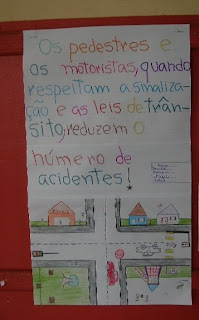 Os pedestres e
os motoristas, quando
respeitam a sinaliza-
ção e as leis de trân-
sito, reduzem o
número de
acidentes!